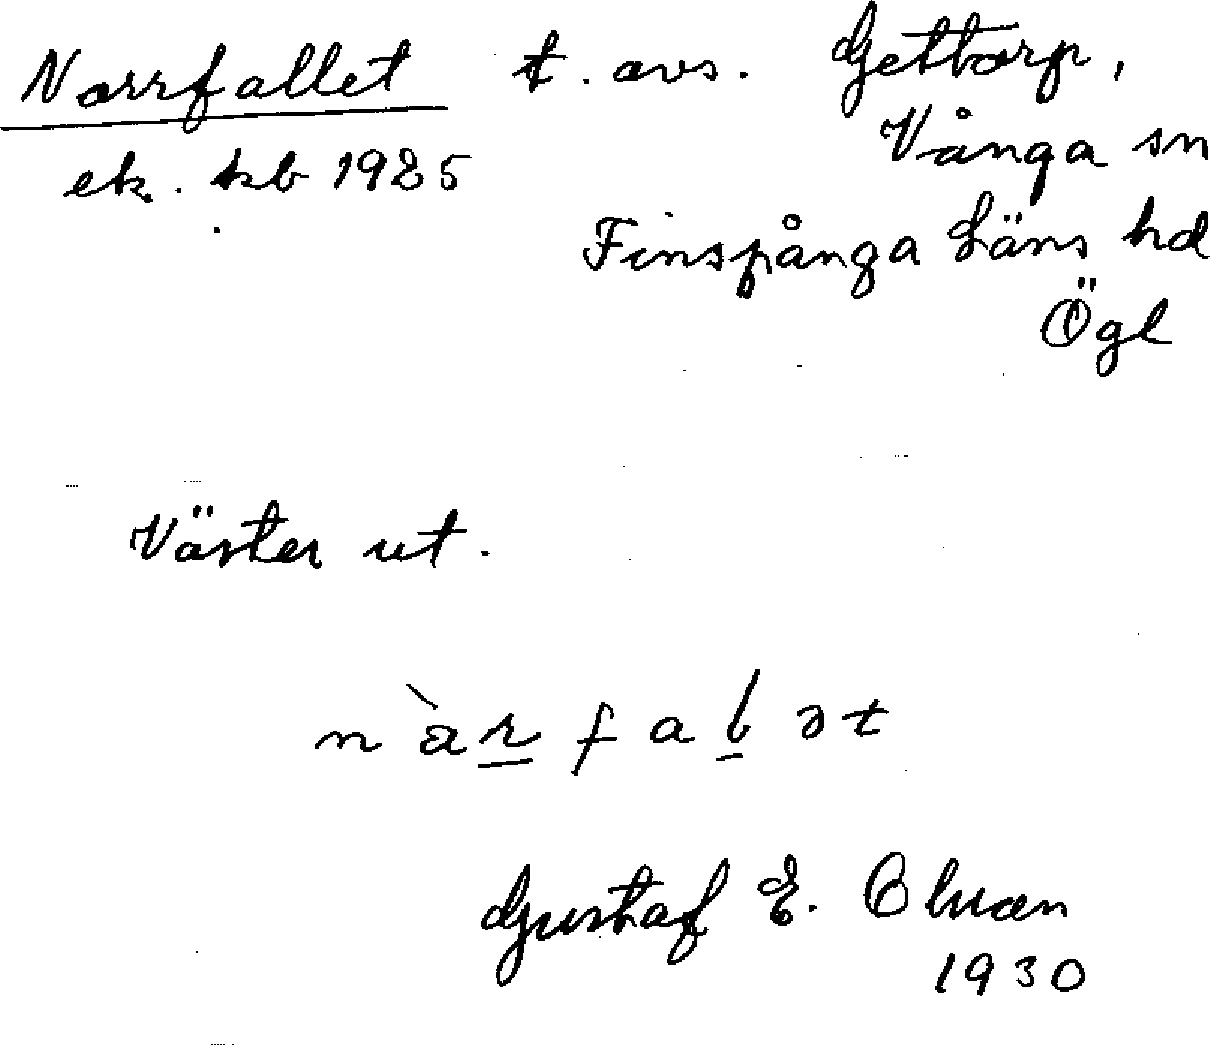 Norrfallet t. avs. Gettorp,
ek. kb 1925 Vånga sn
Finspånga Läns hd
Ögl
Väster ut.
n àr f a l ət
Gustaf E.
1930